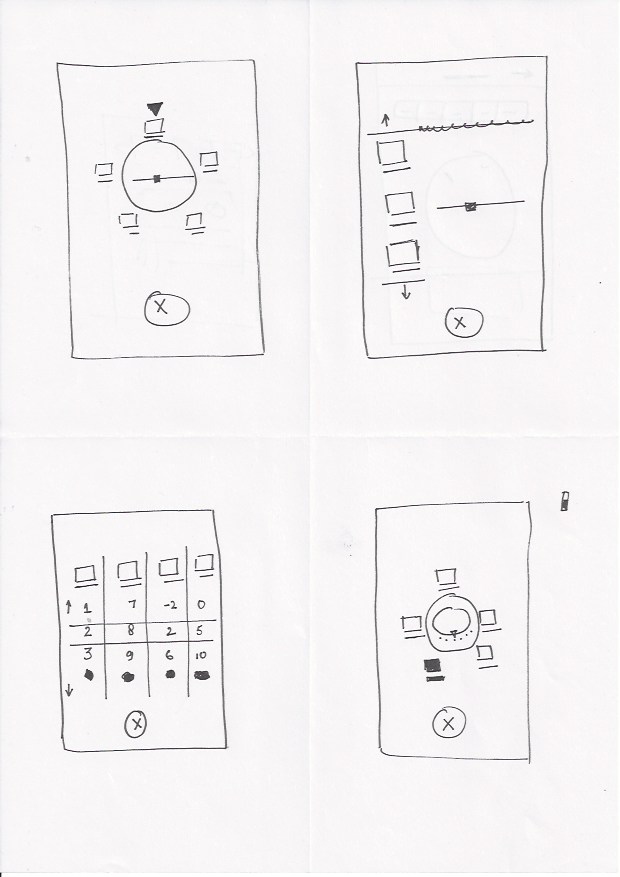 X
X
1 7 -2 0
2 8 2 5
3 9 6 10
X
X